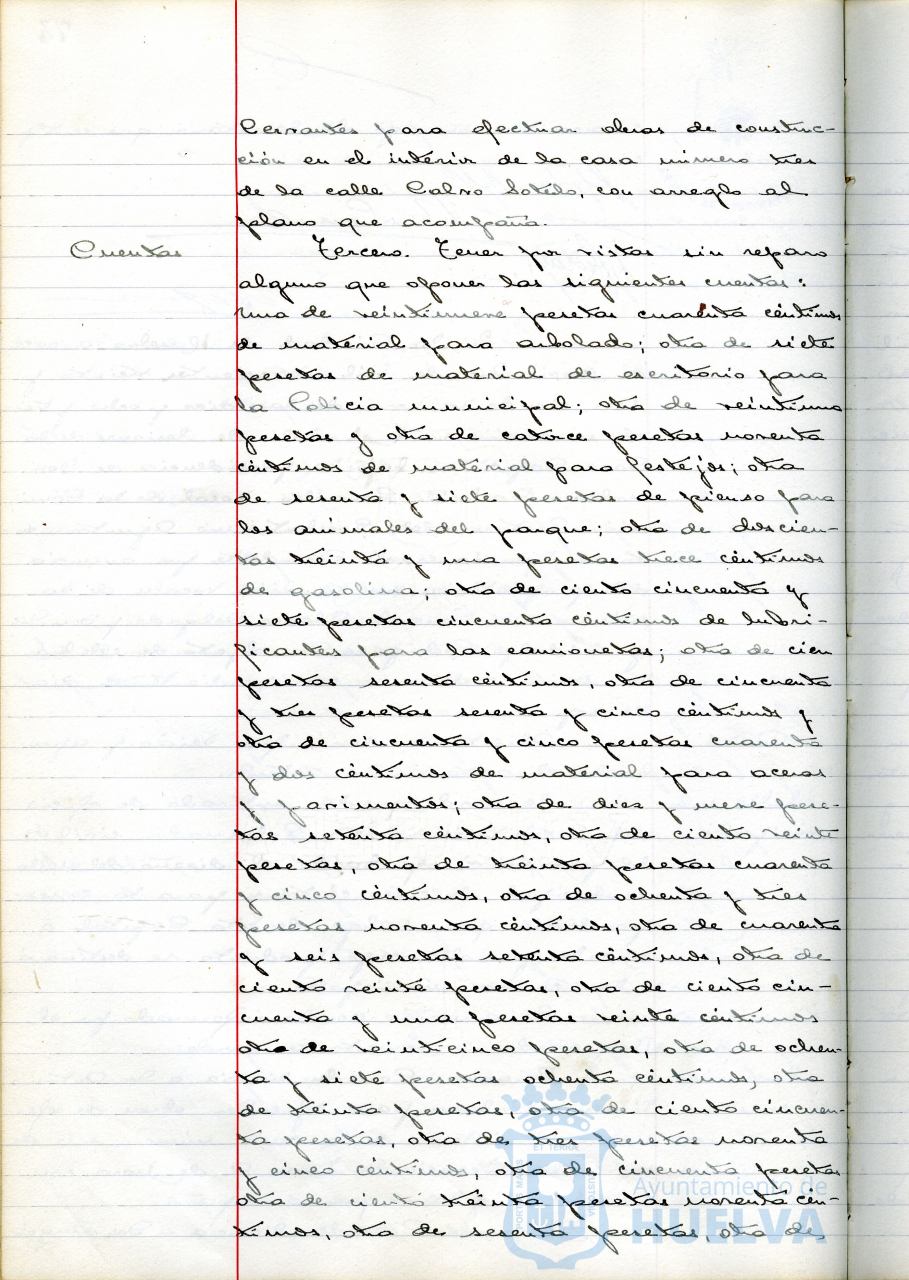 Cervantes para efectuar obras de construc-
ción en el interior de la casa número tres
de la calle Calvo Sotelo, con arreglo al
plano que acompaña.
Cuentas
Tercero. Tener por vistas sin reparo
alguno que oponer las siguientes cuentas:
Una de veintinueve pesetas cuarenta céntimos
de material para arbolado; otra de siete
pesetas de material de escritorio para
la Policía municipal; otra de veintiuna
pesetas y otra de catorce pesetas noventa
céntimos de material para festejos; otra
de sesenta y siete pesetas de pienso para
los animales del parque; otra de doscien-
tas treinta y una pesetas trece céntimos
de gasolina; otra de ciento cincuenta y
siete pesetas cincuenta céntimos de lubri-
ficantes para las camionetas; otra de cien
pesetas sesenta céntimos, otra de cincuenta
y tres pesetas sesenta y cinco céntimos y
otra de cincuenta y cinco pesetas cuarenta
y dos céntimos de material para aceras
y pavimentos; otra de diez y nueve pese-
tas setenta céntimos, otra de ciento veinte
pesetas, otra de treinta pesetas cuarenta
y cinco céntimos, otra de ochenta y tres
pesetas noventa céntimos, otra de cuarenta
y seis pesetas setenta céntimos, otra de
ciento veinte pesetas, otra de ciento cin-
cuenta y una pesetas veinte céntimos
otra de veinticinco pesetas, otra de ochen-
ta y siete pesetas ochenta céntimos, otra
de treinta pesetas, otra de ciento cincuen-
ta pesetas, otra de tres pesetas noventa
y cinco céntimos, otra de cincuenta pesetas
otra de ciento treinta pesetas noventa cén-
timos, otra de sesenta pesetas, otra de
Ayuntamiento de
HUELVA